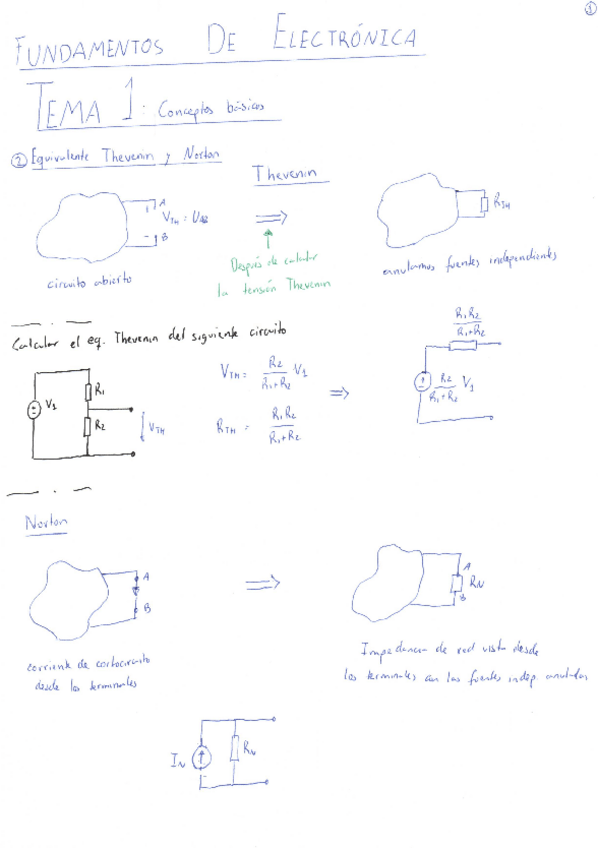 1
FUNDAMENTOS DE ELECTRÓNICA
TEMA 1: Conceptos básicos
2 Equivalente Thevenin y Norton
Thevenin
A
V_TH = U_AB
B
circuito abierto
⇒
Después de calcular
la tensión Thevenin
R_TH
anulamos fuentes independientes
Calcular el eq. Thevenin del siguiente circuito
V1
R1
R2
V_TH
V_TH = R2/(R1+R2) V1
R_TH = R1R2/(R1+R2)
⇒
R1R2/(R1+R2)
R2/(R1+R2) V1
Norton
A
B
corriente de cortocircuito
desde los terminales
⇒
A
R_N
B
Impedancia de red vista desde
los terminales con las fuentes indep. anuladas
I_N
R_N